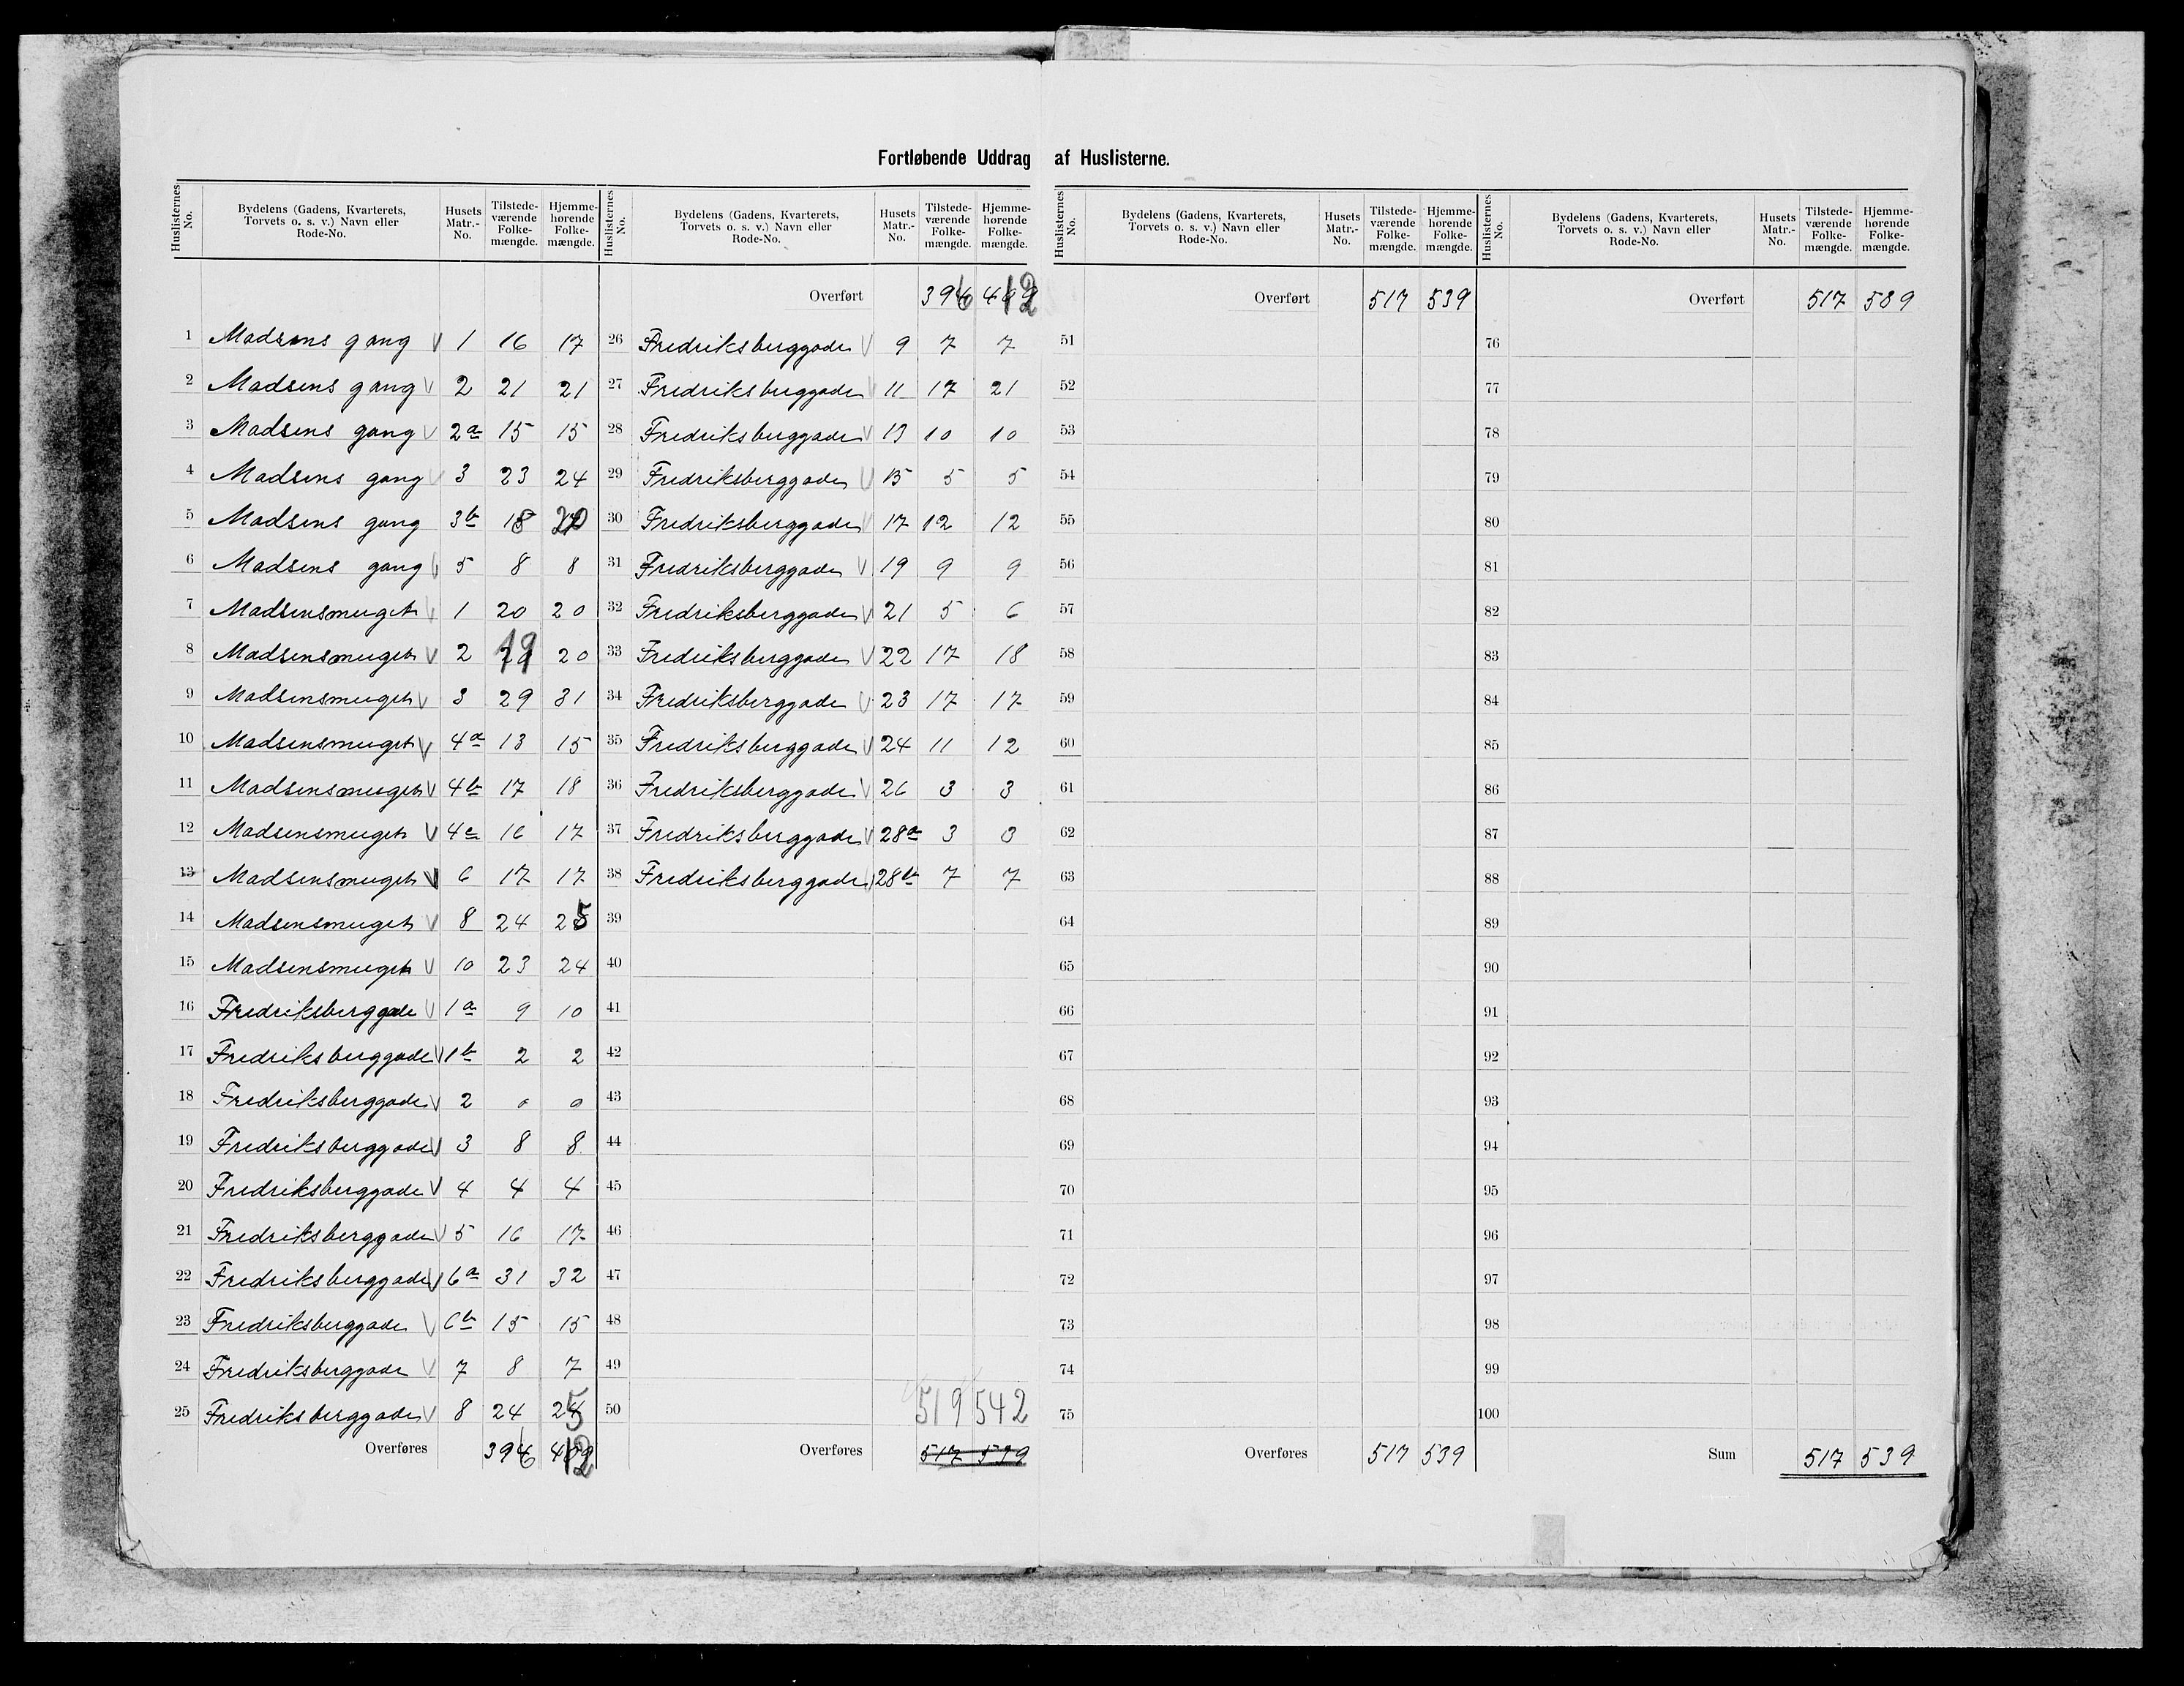 Fortløbende Uddrag af Huslisterne.
Huslisternes No. Bydelens (Gadens, Kvarterets, Torvets o. s. v.) Navn eller Rode-No. Husets Matr.-No. Tilstedeværende Folkemængde. Hjemmehørende Folkemængde.
1 Madsens gang V 1 16 17
2 Madsens gang V 2 21 21
3 Madsens gang V 2a 15 15
4 Madsens gang V 3 23 24
5 Madsens gang 3b 18 20
6 Madsens gang V 5 8 8
7 Madsensmuget V 1 20 20
8 Madsensmuget V 2 19 20
9 Madsensmuget V 3 29 31
10 Madsensmuget V 4a 13 15
11 Madsensmuget V 4b 17 18
12 Madsensmuget V 4c 16 17
13 Madsensmuget V 6 17 17
14 Madsensmuget V 8 24 25
15 Madsensmuget V 10 23 24
16 Fredriksberggade V 1a 9 10
17 Fredriksberggade V 1b 2 2
18 Fredriksberggade V 2 0 0
19 Fredriksberggade V 3 8 8
20 Fredriksberggade V 4 4 4
21 Fredriksberggade V 5 16 17
22 Fredriksberggade V 6a 31 32
23 Fredriksberggade V 6b 15 15
24 Fredriksberggade V 7 8 7
25 Fredriksberggade V 8 24 25
Overføres 396 412
Huslisternes No. Bydelens (Gadens, Kvarterets, Torvets o. s. v.) Navn eller Rode-No. Husets Matr.-No. Tilstedeværende Folkemængde. Hjemmehørende Folkemængde.
Overført 396 412
26 Fredriksberggade V 9 7 7
27 Fredriksberggade V 11 17 21
28 Fredriksberggade V 13 10 10
29 Fredriksberggade V 15 5 5
30 Fredriksberggade V 17 12 12
31 Fredriksberggade V 19 9 9
32 Fredriksberggade V 21 5 6
33 Fredriksberggade V 22 17 18
34 Fredriksberggade V 23 17 17
35 Fredriksberggade V 24 11 12
36 Fredriksberggade V 26 3 3
37 Fredriksberggade V 28a 3 3
38 Fredriksberggade V 28b 7 7
39
40
41
42
43
44
45
46
47
48
49
50 519 542
Overføres 517 539
Huslisternes No. Bydelens (Gadens, Kvarterets, Torvets o. s. v.) Navn eller Rode-No. Husets Matr.-No. Tilstedeværende Folkemængde. Hjemmehørende Folkemængde.
Overført 517 539
51
52
53
54
55
56
57
58
59
60
61
62
63
64
65
66
67
68
69
70
71
72
73
74
75
Overføres 517 539
Huslisternes No. Bydelens (Gadens, Kvarterets, Torvets o. s. v.) Navn eller Rode-No. Husets Matr.-No. Tilstedeværende Folkemængde. Hjemmehørende Folkemængde.
Overført 517 589
76
77
78
79
80
81
82
83
84
85
86
87
88
89
90
91
92
93
94
95
96
97
98
99
100
Sum 517 539